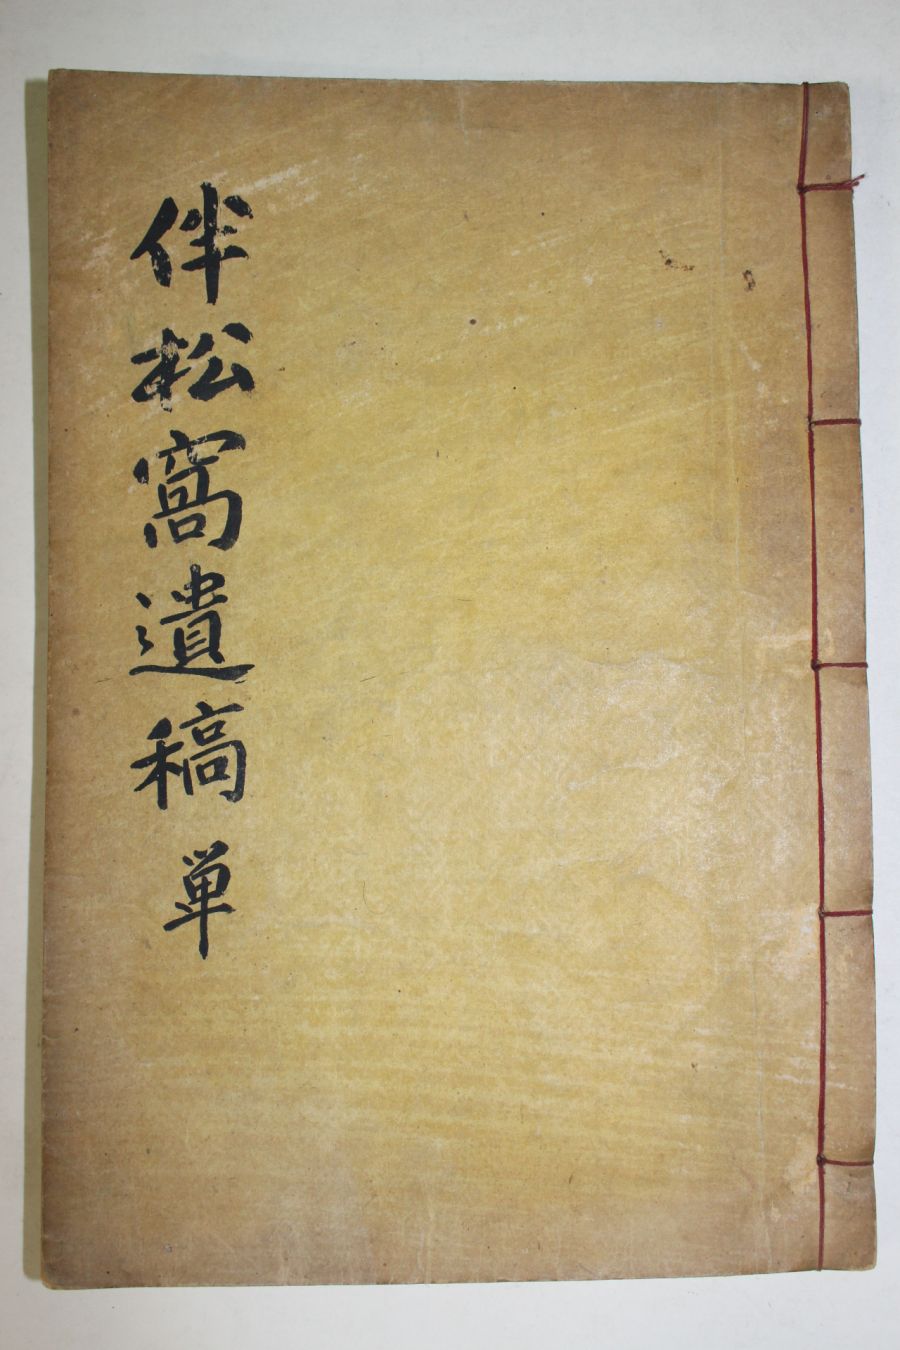 伴松窩遺稿 単